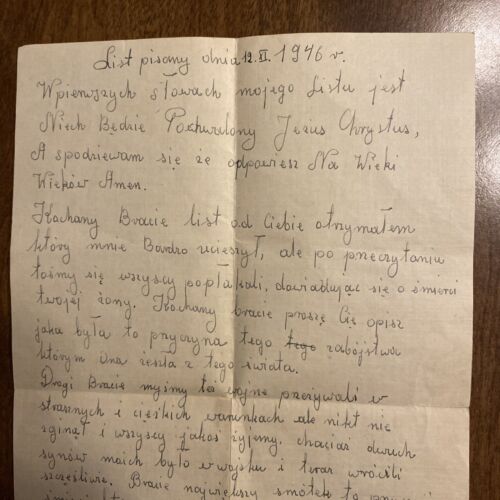 List pisany dnia 12. XI. 1946 r.
Wpierwszych słowach mojego Listu jest
Niech Będzie Pochwalony Jezus Chrystus,
A spodziewam się że odpowiesz Na Wieki
Wieków Amen.
Kochany Bracie list od Ciebie otrzymałem
który mnie Bardzo ucieszył, ale po przeczytaniu
tośmy się wszyscy popłakali, dowiadując się o śmierci
twojej żony. Kochany bracie proszę Cię opisz
jaka była to przyczyna tego tego zabójstwa
którym ona zeszła z tego świata.
Drogi Bracie myśmy tą wojnę przeżywali w
strasznych i ciężkich warunkach ale nikt nie
zginął i wszyscy jakoś żyjemy, chociaż dwuch
synów moich było w wojsku i teraz wrócili
szczęśliwie. Bracie największy smótek to